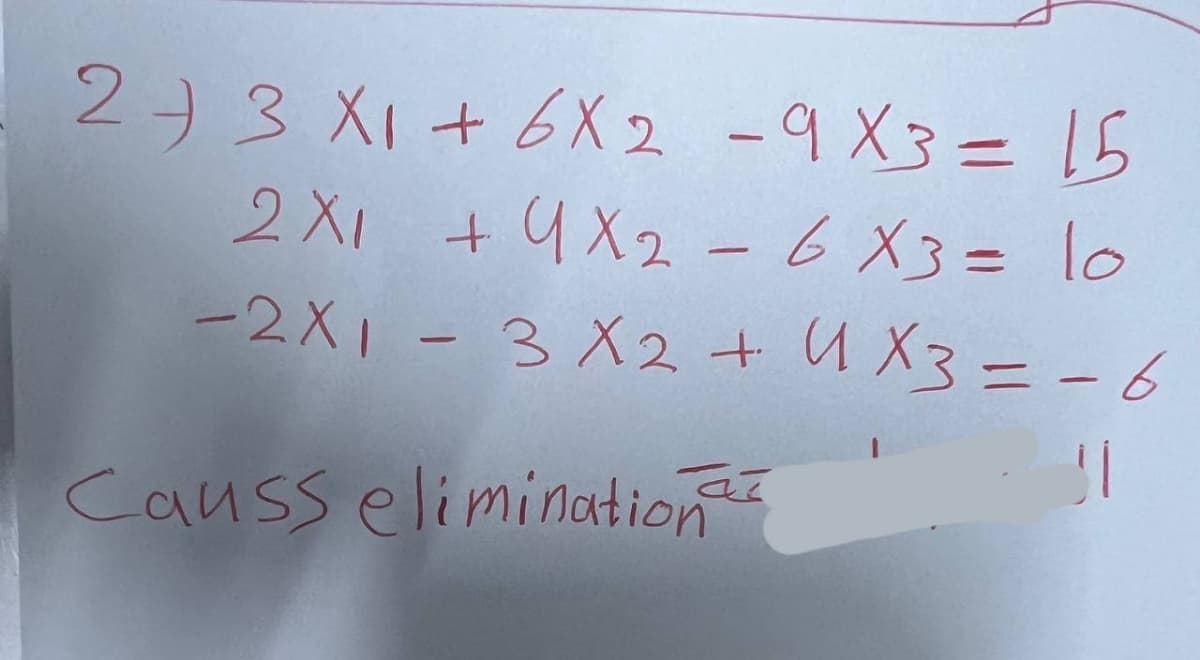 2-) 3 X1 + 6X2 - 9 X3 = 15
2 X1 + 4 X2 - 6 X3 = 10
-2X1 - 3 X2 + 4 X3 = - 6
Causs elimination